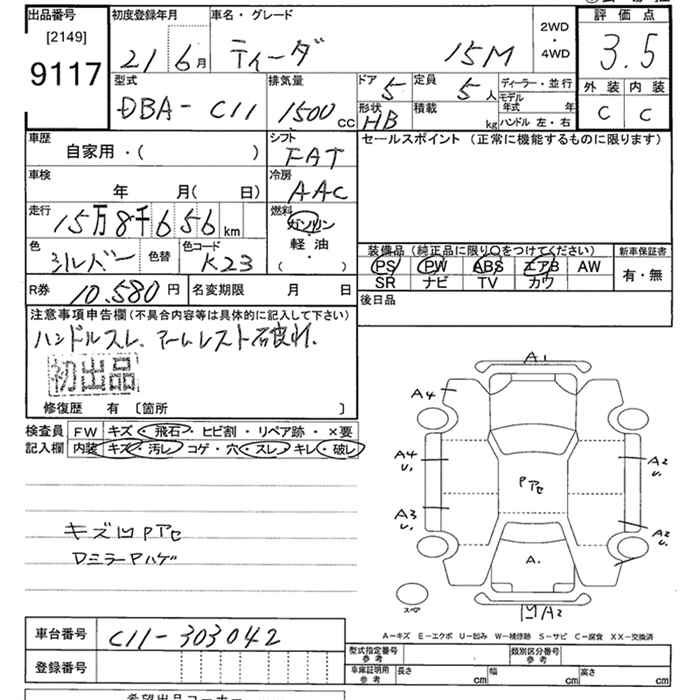 出品番号 初度登録年月 車名・グレード 評価点
[2149] 21 6月 ティーダ 15M 2WD・4WD 3.5
9117
型式 排気量 ドア 5 定員 5人 ディーラー・並行 外装 内装
DBA-C11 1500cc 形状 HB 積載 kg モデル年式 年 C C
ハンドル 左・右
車歴 シフト セールスポイント (正常に機能するものに限ります)
自家用・( ) FAT
車検 冷房
年 月( 日) AAC
走行 燃料
15万8千656km ガソリン
色 色替 色コード 軽油
シルバー K23 ( )
装備品 (純正品に限り〇をつけてください) 新車保証書
PS PW ABS エアB AW 有・無
SR ナビ TV カワ
R券 10,580円 名変期限 月 日
後日品
注意事項申告欄(不具合内容等は具体的に記入して下さい)
ハンドルスレ、アームレスト
初出品
修復歴 有 [箇所 ]
検査員 FW キズ・飛石・ヒビ割・リペア跡・×要
記入欄 内装 キズ・汚レ・コゲ・穴・スレ・キレ・破レ
キズ凹Pアセ
DミラーPハゲ
A1
A4
A4
U.
A2
U.
Pアセ
A3
U.
A2
U.
A.
凹A2
スペア
A-キズ E-エクボ U-凹み W-補修跡 S-サビ C-腐食 XX-交換済
車台番号 C11-303042
型式指定番号 参考 類別区分番号 参考
登録番号
車庫証明用 参考 長さ cm 幅 cm 高さ cm
希望出品コーナー